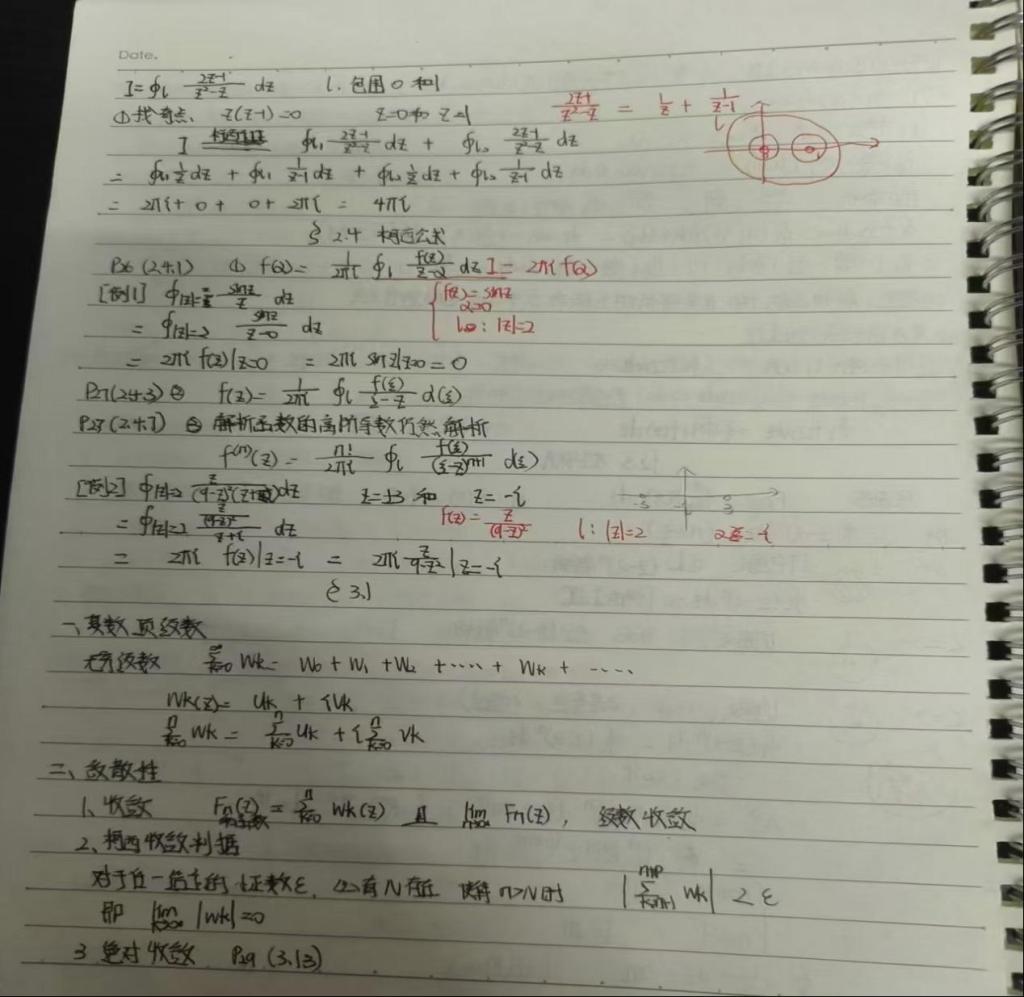 Date.
I = ∮l (2z-1)/(z²-z) dz l. 包围 0 和 1
① 找奇点、 z(z-1)=0 z=0 和 z=1 (2z-1)/(z²-z) = 1/z + 1/(z-1)
l
I ∮l₁ (2z-1)/(z²-z) dz + ∮l₂ (2z-1)/(z²-z) dz
= ∮l₁ 1/z dz + ∮l₁ 1/(z-1) dz + ∮l₂ 1/z dz + ∮l₂ 1/(z-1) dz
= 2πi + 0 + 0 + 2πi = 4πi
§ 2.4 柯西公式
P26 (2.4.1) ① f(α) = 1/(2πi) ∮l f(z)/(z-α) dz I = 2πi f(α)
[例1] ∮|z|=2 sinz/z dz { f(z) = sinz
α=0
= ∮|z|=2 sinz/(z-0) dz l: |z|=2
= 2πi f(z)|z=0 = 2πi sinz|z=0 = 0
P27 (2.4.3) ② f(z) = 1/(2πi) ∮l f(ξ)/(ξ-z) d(ξ)
P28 (2.4.7) ③ 解析函数的高阶导数仍然解析
f⁽ⁿ⁾(z) = n!/(2πi) ∮l f(ξ)/(ξ-z)ⁿ⁺¹ d(ξ)
[例2] ∮|z|=2 z/((9-z²)(z+i)) dz z=±3 和 z=-i
= ∮|z|=2 (z/(9-z²))/(z+i) dz f(z) = z/(9-z²) l: |z|=2 α=-i
= 2πi f(z)|z=-i = 2πi z/(9-z²)|z=-i
§ 3.1
一、复数项级数
无穷级数 ∑k=0^∞ Wk = W0 + W1 + W2 + ····· + Wk + ·····
Wk(z) = Uk + iVk
∑k=0^n Wk = ∑k=0^n Uk + i∑k=0^n Vk
二、敛散性
1、收敛 Fn(z) = ∑k=0^n Wk(z) 且 lim n→∞ Fn(z), 级数收敛
2、柯西收敛判据
对于任一给定的小正数ε, 必有N存在 使得 n>N时 |∑k=n+1^n+p Wk| < ε
即 lim k→∞ |Wk|=0
3 绝对收敛 P29 (3.1.3)